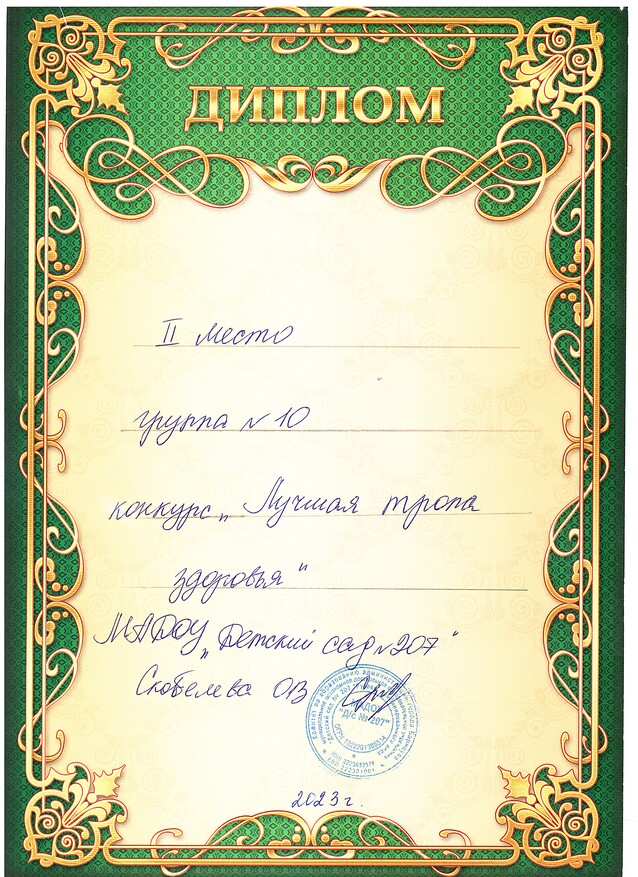 ДИПЛОМ
II место
группа № 10
конкурс „Лучшая тропа
здоровья“
МАДОУ „Детский сад № 207“
Скобелева ОВ
"Д/с № 207"
2023 г.